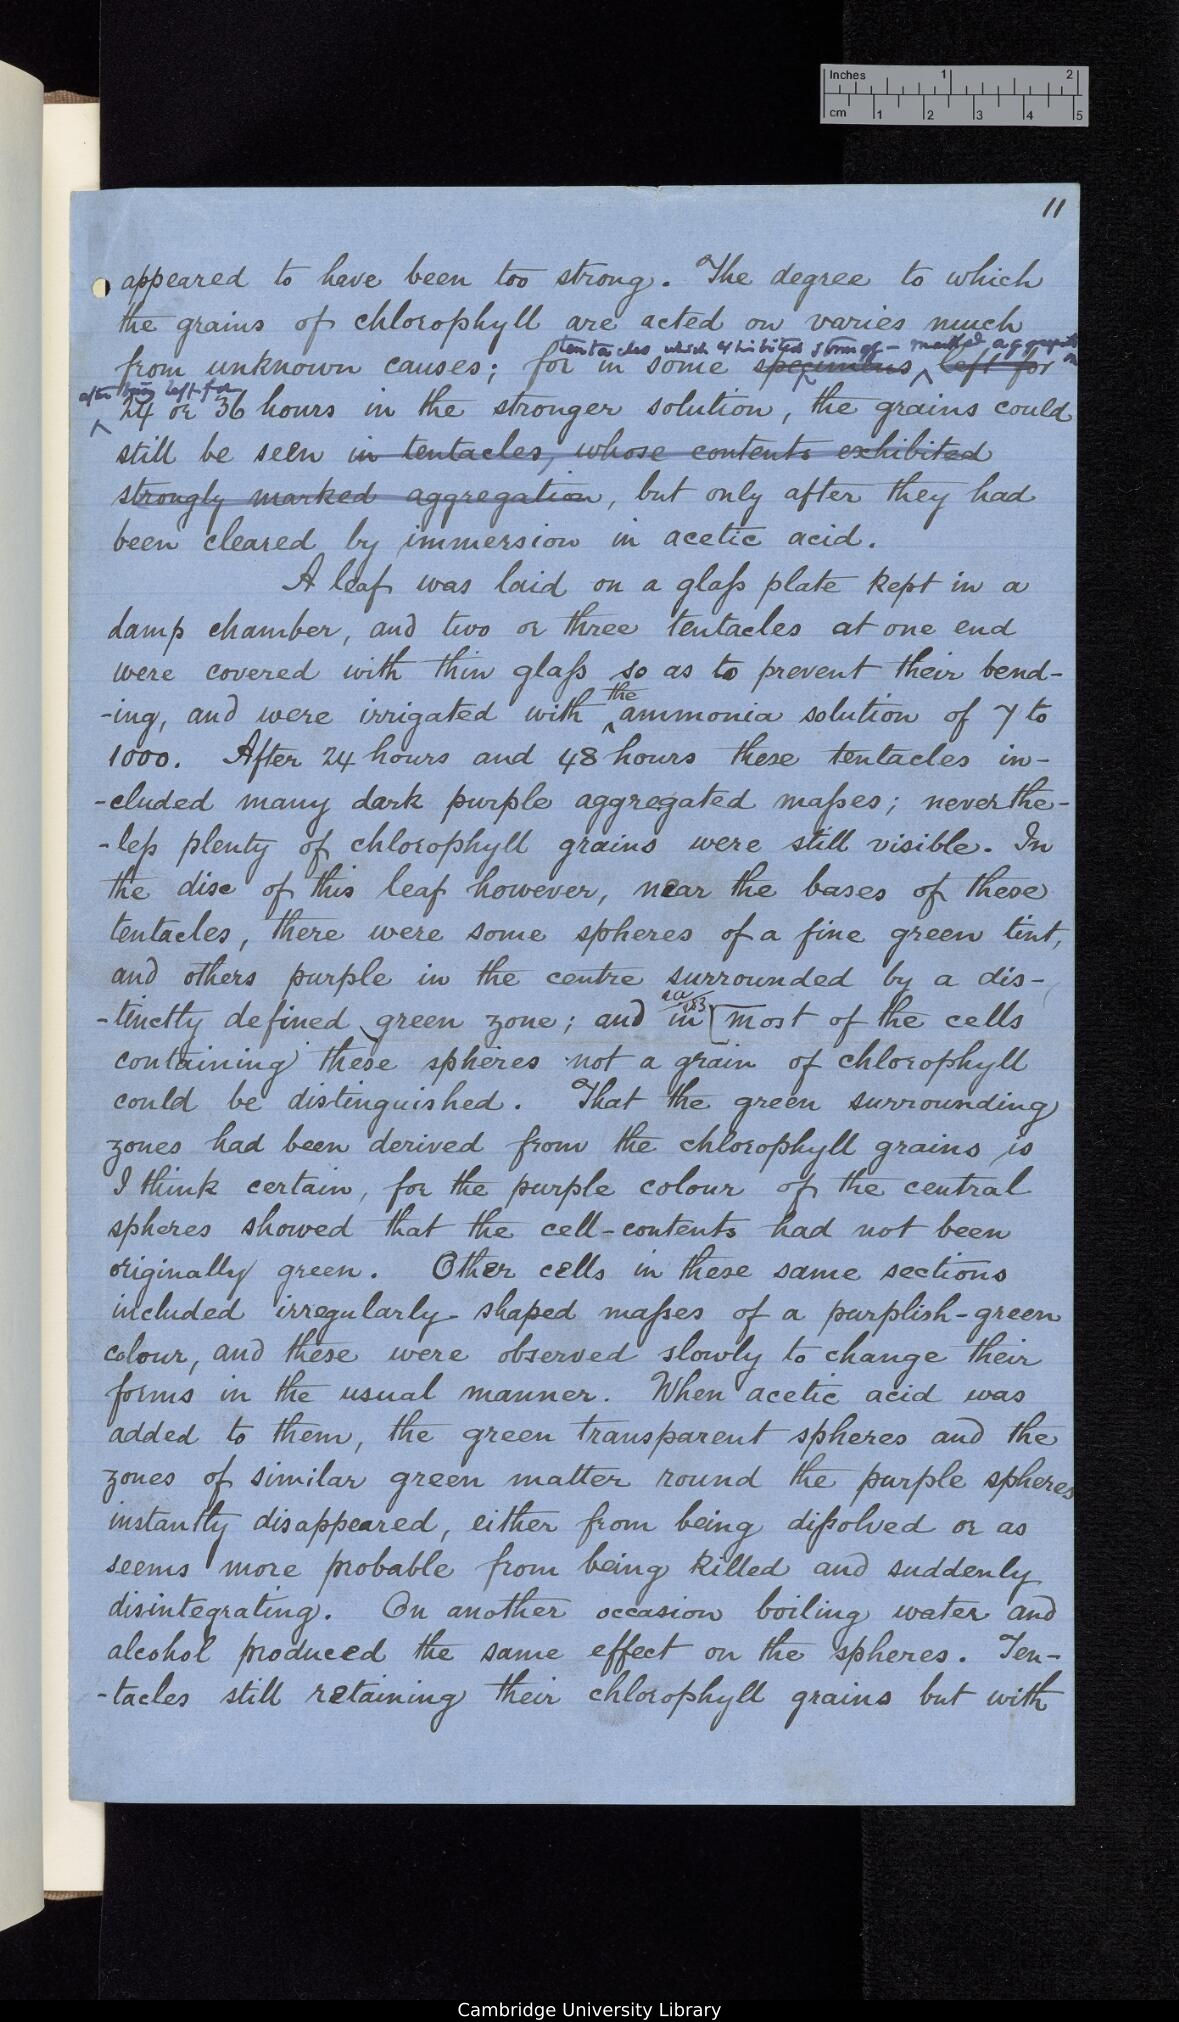 Inches 1 2
cm 1 2 3 4 5
11
appeared to have been too strong. The degree to which
the grains of chlorophyll are acted on varies much
tentacles which exhibited strongly-marked aggregation
from unknown causes; for in some specimens left for
after being left for
24 or 36 hours in the stronger solution, the grains could
still be seen in tentacles, whose contents exhibited
strongly marked aggregation, but only after they had
been cleared by immersion in acetic acid.
A leaf was laid on a glass plate kept in a
damp chamber, and two or three tentacles at one end
were covered with thin glass so as to prevent their bend-
-ing, and were irrigated with the ammonia solution of 7 to
1000. After 24 hours and 48 hours these tentacles in-
-cluded many dark purple aggregated masses; neverthe-
-less plenty of chlorophyll grains were still visible. In
the disc of this leaf however, near the bases of these
tentacles, there were some spheres of a fine green tint,
and others purple in the centre surrounded by a dis-
-tinctly defined green zone; and in most of the cells
containing these spheres not a grain of chlorophyll
could be distinguished. That the green surrounding
zones had been derived from the chlorophyll grains is
I think certain, for the purple colour of the central
spheres showed that the cell-contents had not been
originally green. Other cells in these same sections
included irregularly-shaped masses of a purplish-green
colour, and these were observed slowly to change their
forms in the usual manner. When acetic acid was
added to them, the green transparent spheres and the
zones of similar green matter round the purple spheres
instantly disappeared, either from being dissolved or as
seems more probable from being killed and suddenly
disintegrating. On another occasion boiling water and
alcohol produced the same effect on the spheres. Ten-
-tacles still retaining their chlorophyll grains but with
Cambridge University Library